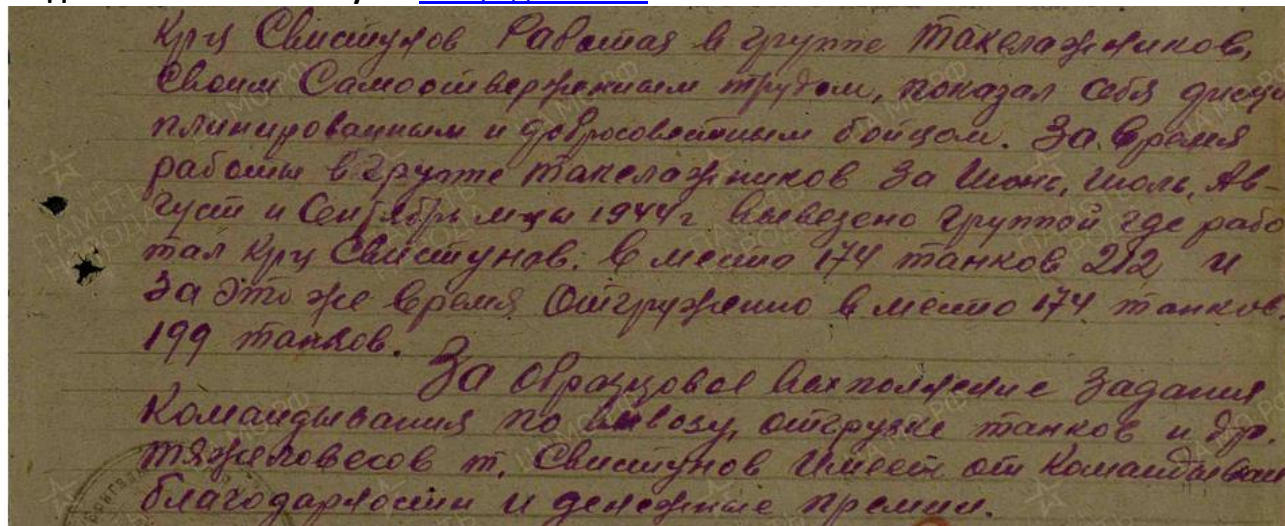 Кр-ц Свистунов Работая в группе такелажников,
Своим Самоотверженным трудом, показал себя дисци
плинированным и добросовестным бойцом. За время
работы в группе такелажников за Июнь, июль, Ав-
густ и Сентябрь м-цы 1944 г вывезено группой где рабо
тал кр-ц Свистунов. в место 174 танков 212 и
за это же время Отгруженно в место 174 танков.
199 танков.
За образцовое выполнение задания
Командывания по вывозу, отгрузке танков и др.
тяжеловесов т. Свистунов Имеет от Командыван
благодарности и денежные премии.
ПАМЯТЬ НАРОДА
PAMYAT-NARODA